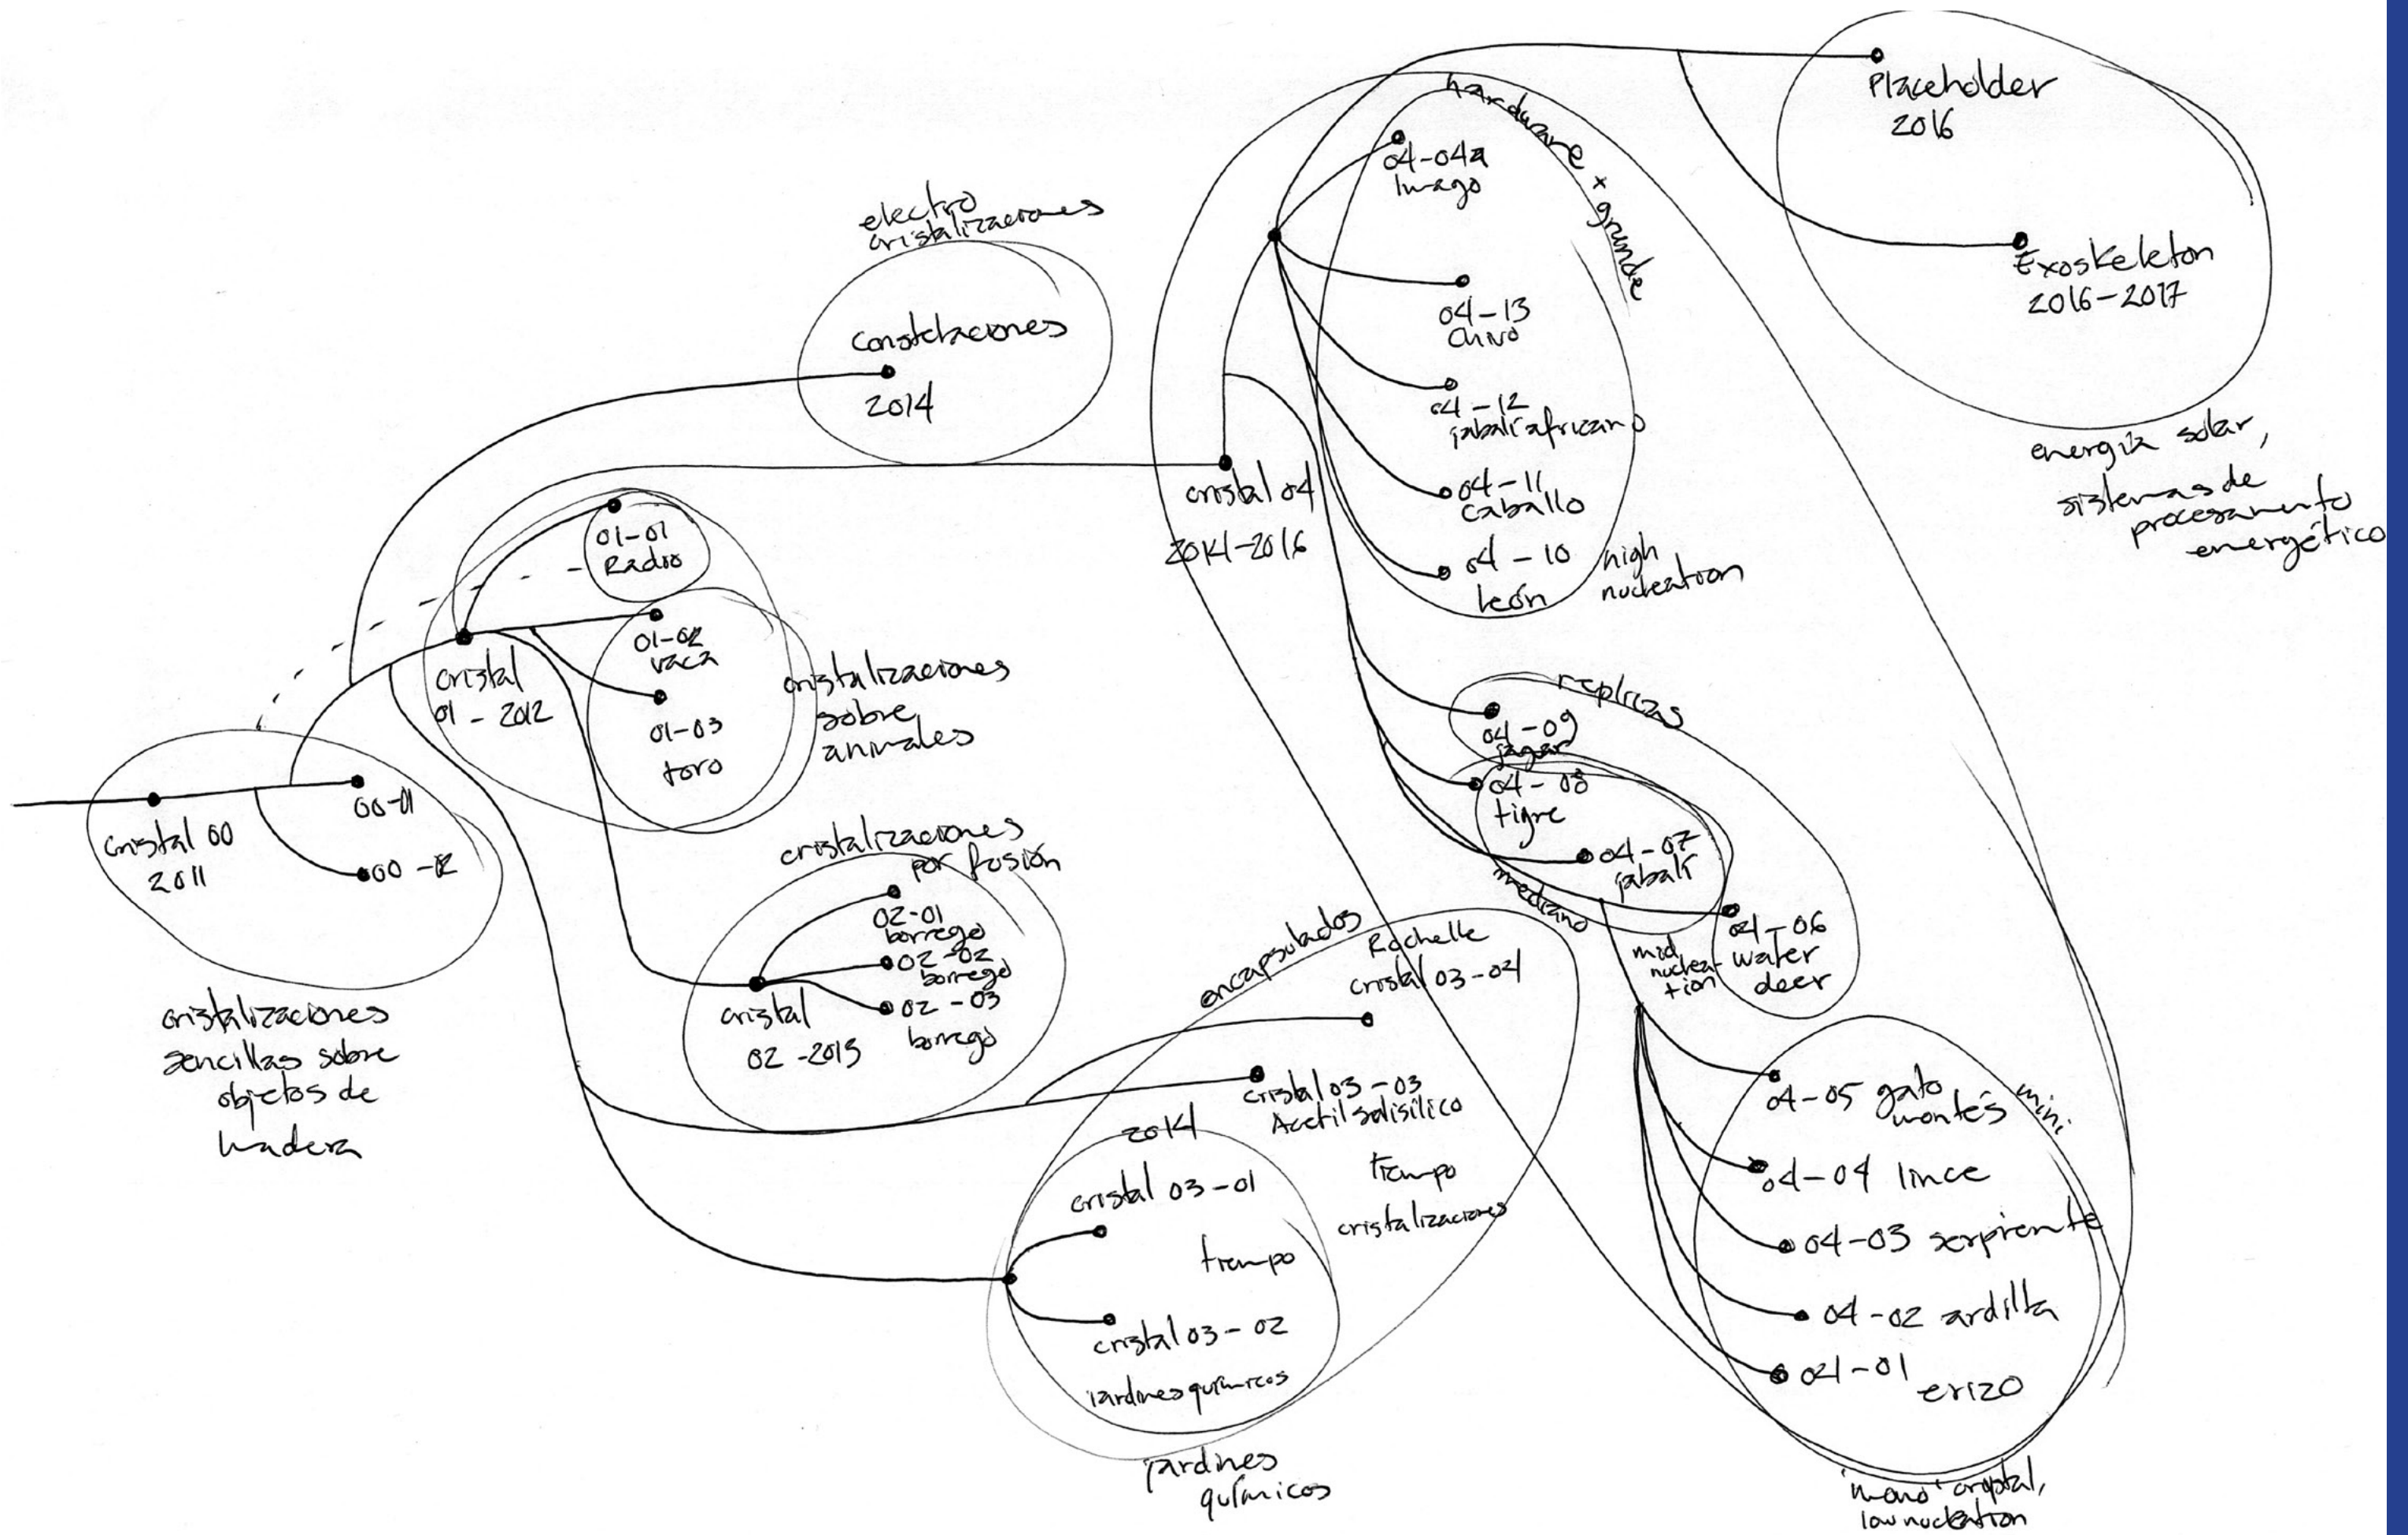 cristal 00
2011
00-01
00-12
cristalizaciones
sencillas sobre
objetos de
madera
cristal
01 - 2012
01-01
Radio
01-02
vaca
01-03
toro
cristalizaciones
sobre
animales
electro
cristalizaciones
Constelaciones
2014
cristalizaciones
por fusión
02-01
borrego
02-02
borrego
02-03
borrego
cristal
02 -2013
encapsulados
Rochelle
cristal 03-04
cristal 03-03
Acetilsalisílico
tiempo
cristalizaciones
2014
cristal 03-01
tiempo
cristal 03-02
jardines químicos
jardines
químicos
cristal 04
2014-2016
hardware + grande
04-04a
Imago
04-13
Chivo
04-12
jabalí africano
04-11
caballo
04-10
león
high
nucleation
replicas
04-09
jaguar
04-08
tigre
04-07
jabalí
mediano
04-06
water
deer
mid
nuclea-
tion
mini
04-05 gato
montés
04-04 lince
04-03 serpiente
04-02 ardilla
04-01
erizo
'mono' crystal,
low nucleation
Placeholder
2016
Exoskeleton
2016-2017
energía solar,
sistemas de
procesamiento
energético